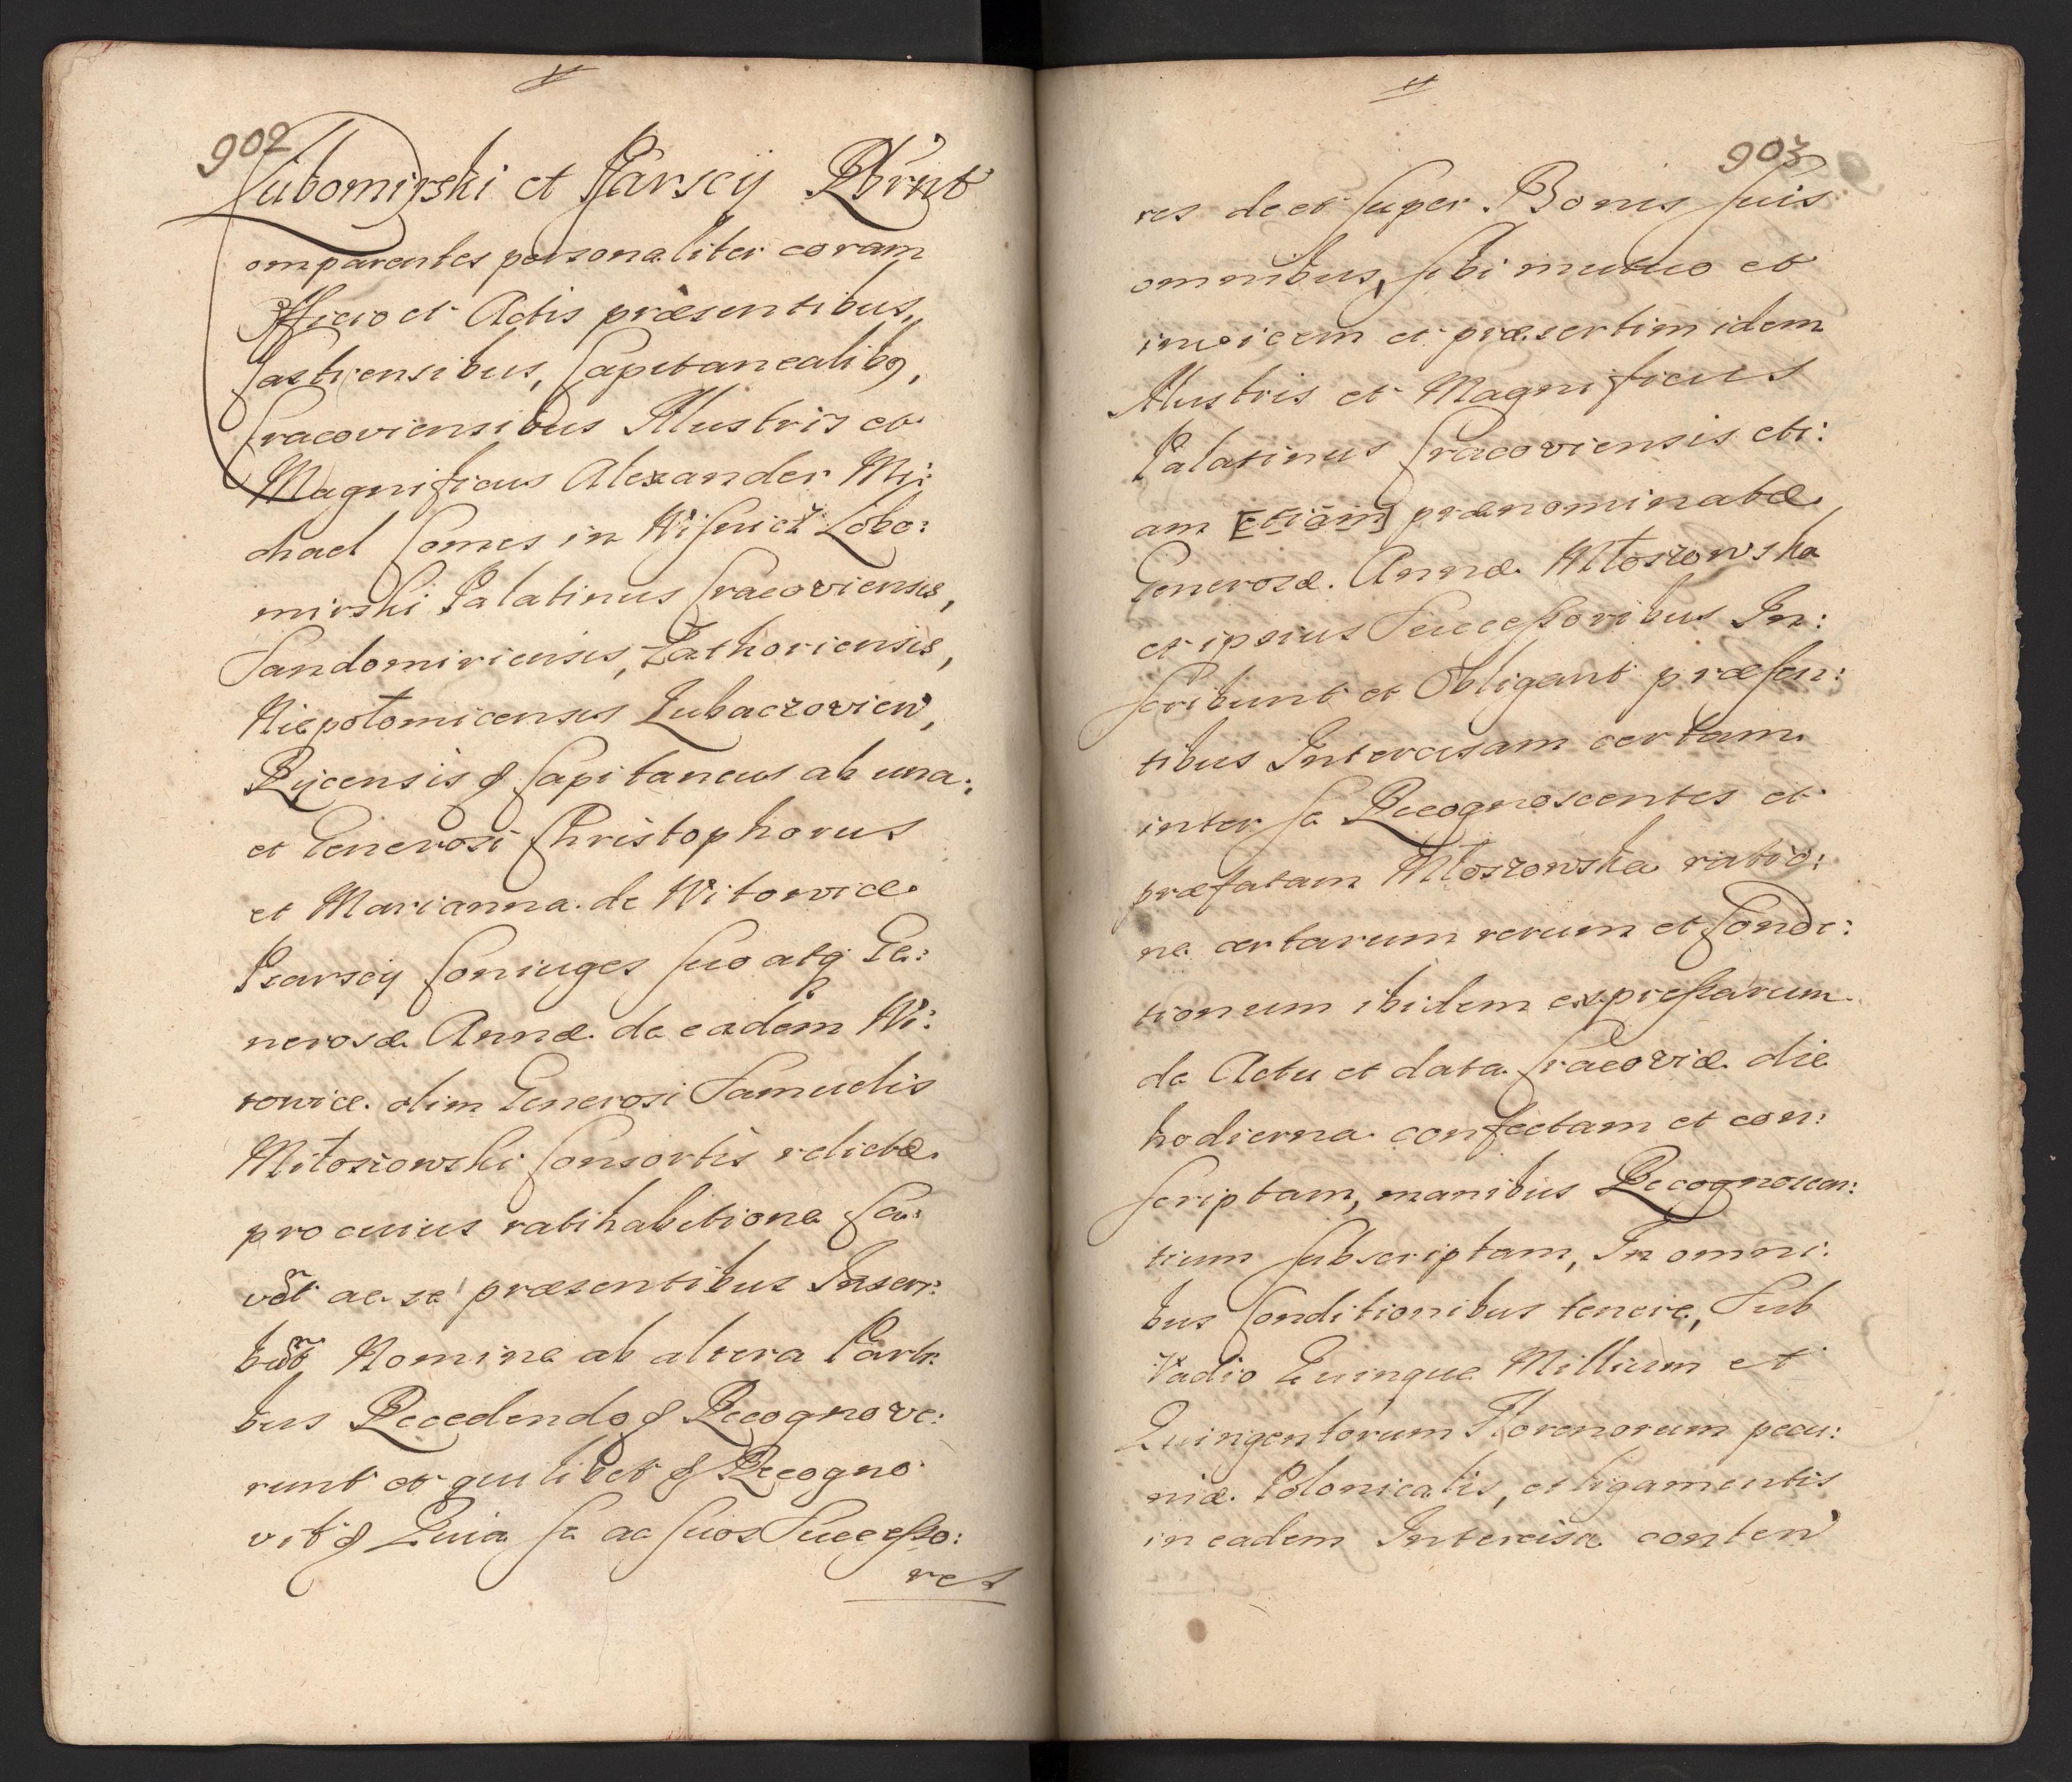 902
Lubomirski et Psarscÿ Rbrnt
omparentes personaliter coram
Officio et Actis præsentibus,
Castrensibus, Capitanealibq,
Cracoviensibus Illustris et
Magnificus Alexander Mi:
chael Comes in Wisnicz Lobo:
mirski Palatinus Cracoviensis,
Sandomiriensis, Zathoriensis,
Niepołomicensis Lubaczovien,
Rÿcensis & Capitaneus ab una:
et Generosi Christophorus
et Marianna de Witowice
Psarscÿ Coniuges suo atq Ge:
nerosæ Annæ de eadem Wi:
towice olim Generosi Samuelis
Młoszowski Consortis relictæ
pro cuius ratihabitione Ca:
vēt ac se præsentibus Inscri:
būt Nomine ab altera Parti:
bus Recedendo & Recognove:
runt et quilibet & Recogno
vit & Quia se ac suos Successo:
res
903
res de et super Bonis suis
omnibus, sibi mutuo et
invicem et præsertim idem
Illustris et Magnificus
Palatinus Cracoviensis eti:
am [etiam] prænominatæ
Generosæ Annæ Młoszowska
et ipsius Successoribus In:
scribunt et Obligant præsen:
tibus Intercisam certam
inter se Recognoscentes et
præfatam Młoszowska ratio:
ne certarum rerum et Condi:
tionum ibidem expressarum
de Actu et data Cracoviæ die
hodierna confectam et con:
scriptam, manibus Recognoscen:
tium subscriptam, In omni:
bus Conditionibus tenere, Sub
Vadio Quinque Millium et
Quingentorum Florenorum pecu:
niæ Polonicalis, et ligamentis
in eadem Intercisa conten